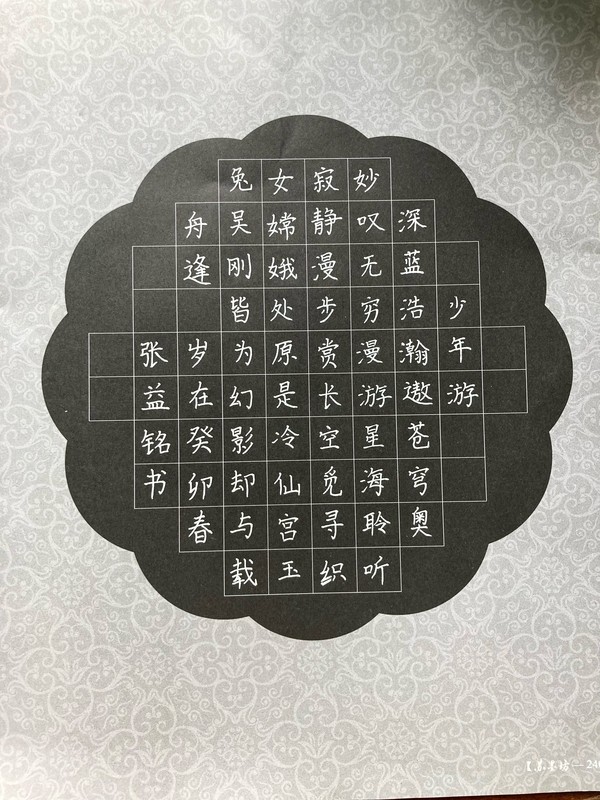 少年游
深蓝浩瀚遨苍穹奥
妙叹无穷漫游星海聆听
寂静漫步赏长空觅寻织
女嫦娥处原是冷仙宫玉
兔吴刚皆为幻影却与载
舟逢 岁在癸卯春
张益铭书